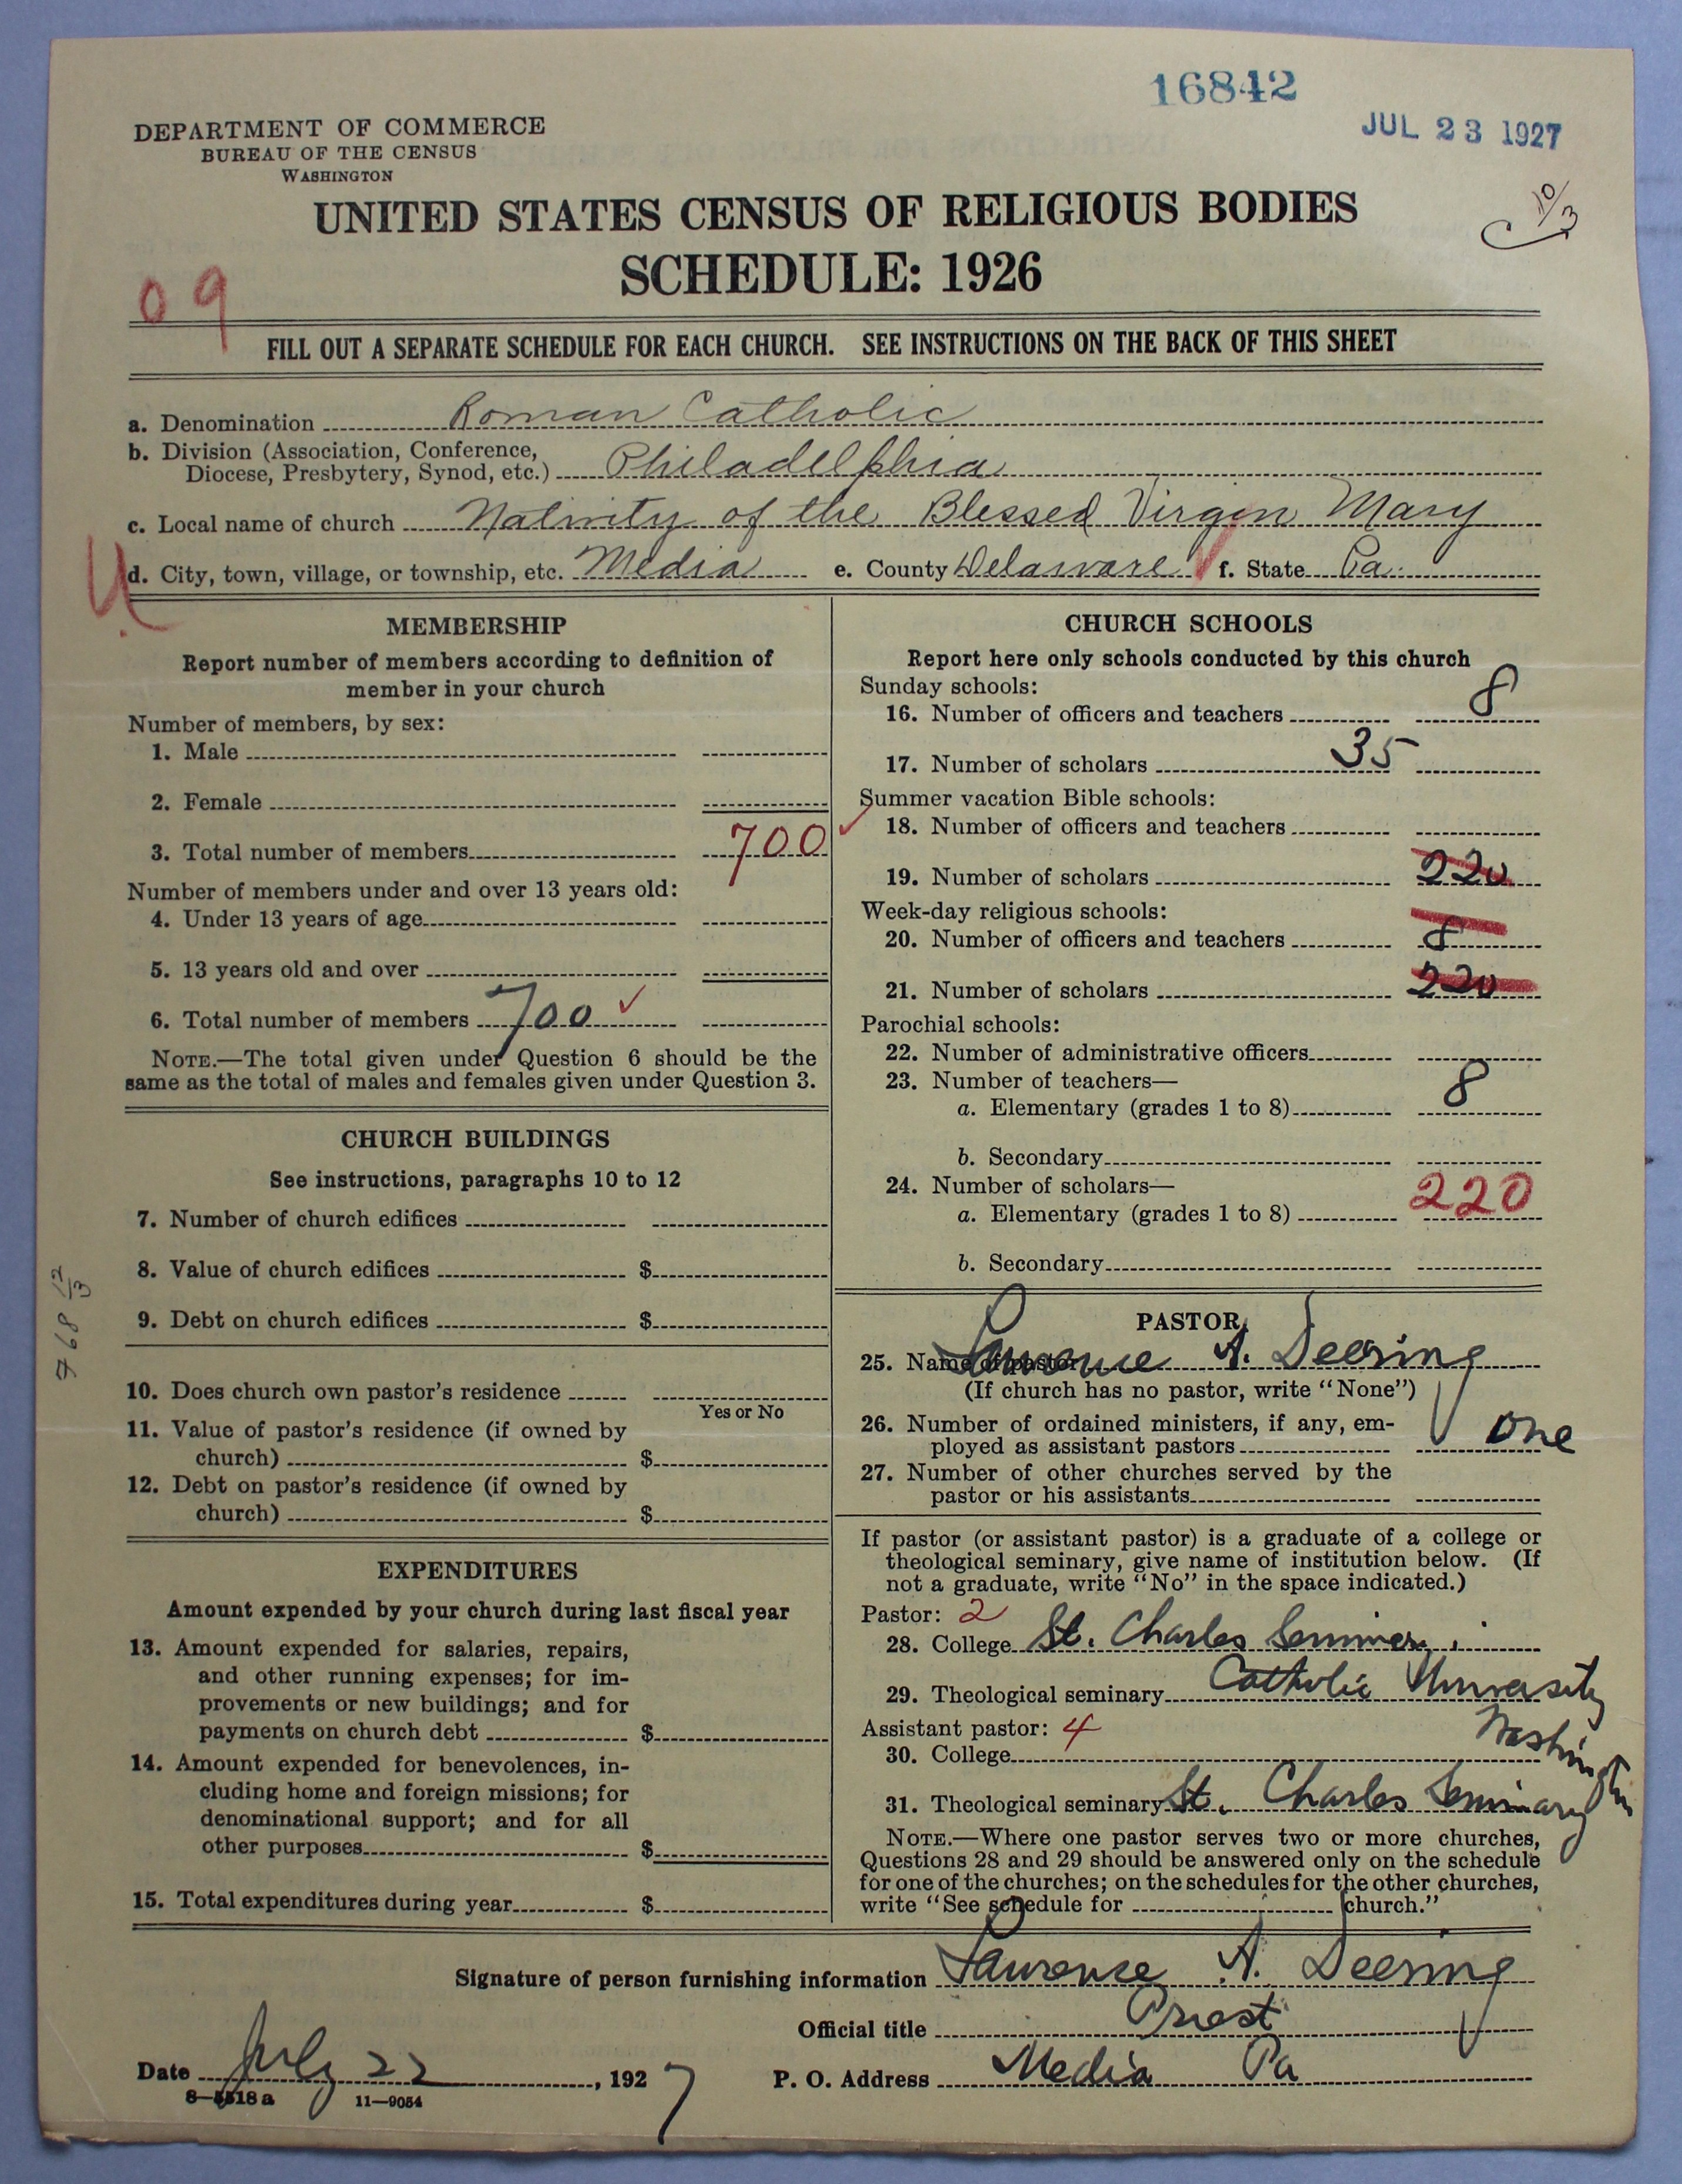 16842
JUL 23 1927
DEPARTMENT OF COMMERCE
BUREAU OF THE CENSUS
WASHINGTON
10/3
UNITED STATES CENSUS OF RELIGIOUS BODIES
SCHEDULE: 1926
09
FILL OUT A SEPARATE SCHEDULE FOR EACH CHURCH. SEE INSTRUCTIONS ON THE BACK OF THIS SHEET
a. Denomination Roman Catholic
b. Division (Association, Conference,
Diocese, Presbytery, Synod, etc.) Philadelphia
c. Local name of church Nativity of the Blessed Virgin Mary
d. City, town, village, or township, etc. Media e. County Delaware f. State Pa.
MEMBERSHIP
Report number of members according to definition of
member in your church
Number of members, by sex:
1. Male
2. Female
3. Total number of members 700
Number of members under and over 13 years old:
4. Under 13 years of age
5. 13 years old and over
6. Total number of members 700
NOTE.—The total given under Question 6 should be the
same as the total of males and females given under Question 3.
CHURCH BUILDINGS
See instructions, paragraphs 10 to 12
7. Number of church edifices
8. Value of church edifices $
9. Debt on church edifices $
768 12/3
10. Does church own pastor's residence
Yes or No
11. Value of pastor's residence (if owned by
church) $
12. Debt on pastor's residence (if owned by
church) $
EXPENDITURES
Amount expended by your church during last fiscal year
13. Amount expended for salaries, repairs,
and other running expenses; for im-
provements or new buildings; and for
payments on church debt $
14. Amount expended for benevolences, in-
cluding home and foreign missions; for
denominational support; and for all
other purposes $
15. Total expenditures during year $
CHURCH SCHOOLS
Report here only schools conducted by this church
Sunday schools:
16. Number of officers and teachers 8
17. Number of scholars 35
Summer vacation Bible schools:
18. Number of officers and teachers
19. Number of scholars 220
Week-day religious schools:
20. Number of officers and teachers 8
21. Number of scholars 220
Parochial schools:
22. Number of administrative officers
23. Number of teachers—
a. Elementary (grades 1 to 8) 8
b. Secondary
24. Number of scholars—
a. Elementary (grades 1 to 8) 220
b. Secondary
PASTOR
25. Name of pastor Lawrence A. Deering
(If church has no pastor, write "None")
26. Number of ordained ministers, if any, em-
ployed as assistant pastors one
27. Number of other churches served by the
pastor or his assistants
If pastor (or assistant pastor) is a graduate of a college or
theological seminary, give name of institution below. (If
not a graduate, write "No" in the space indicated.)
Pastor: 2
28. College St. Charles Seminary
29. Theological seminary Catholic University
Washington
Assistant pastor: 4
30. College
31. Theological seminary St. Charles Seminary
NOTE.—Where one pastor serves two or more churches,
Questions 28 and 29 should be answered only on the schedule
for one of the churches; on the schedules for the other churches,
write "See schedule for church."
Signature of person furnishing information Lawrence A. Deering
Official title Priest
Date July 22, 1927 P. O. Address Media Pa
8—5518 a 11—9054